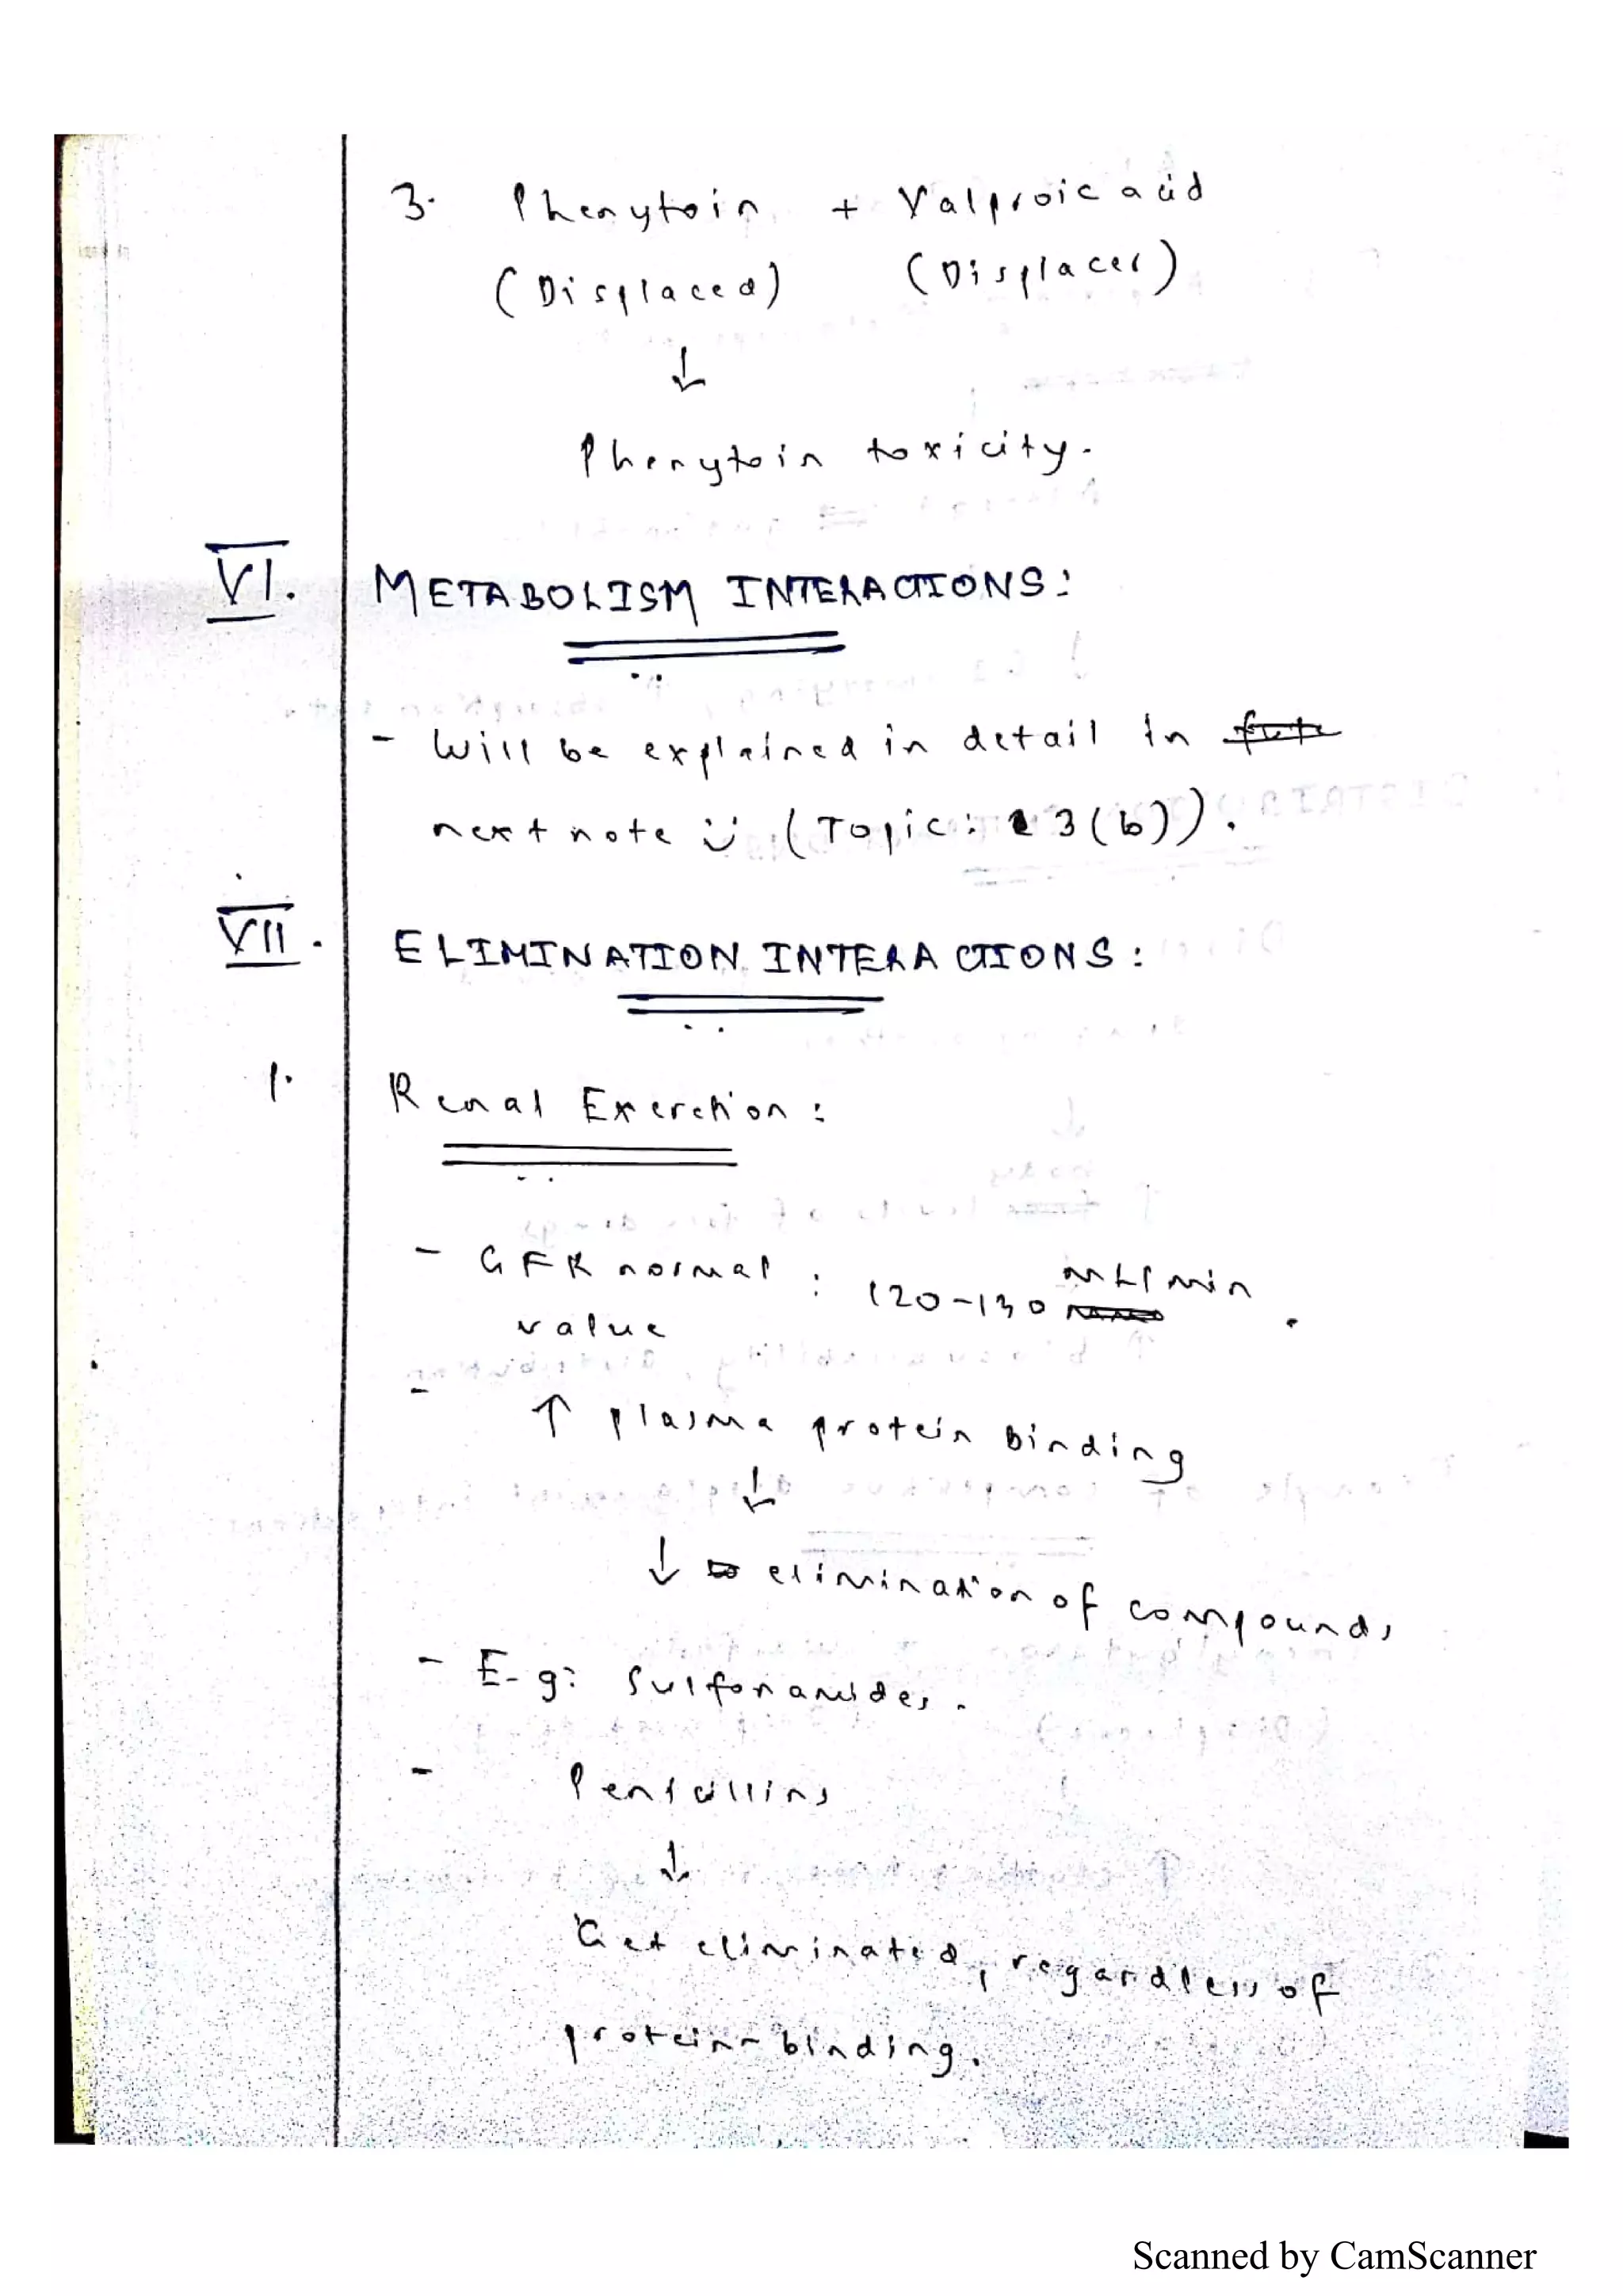 3. Phenytoin + Valproic acid
(Displaced) (Displacer)
↓
Phenytoin toxicity.
VI. METABOLISM INTERACTIONS:
- Will be explained in detail in
next note :) (Topic: 3(b)).
VII. ELIMINATION INTERACTIONS:
1. Renal Excretion:
- GFR normal : 120-130 mL/min.
value
- ↑ plasma protein binding
↓
↓ elimination of compounds
- E.g: Sulfonamides.
- Penicillins
↓
Get eliminated, regardless of
protein-binding.
Scanned by CamScanner